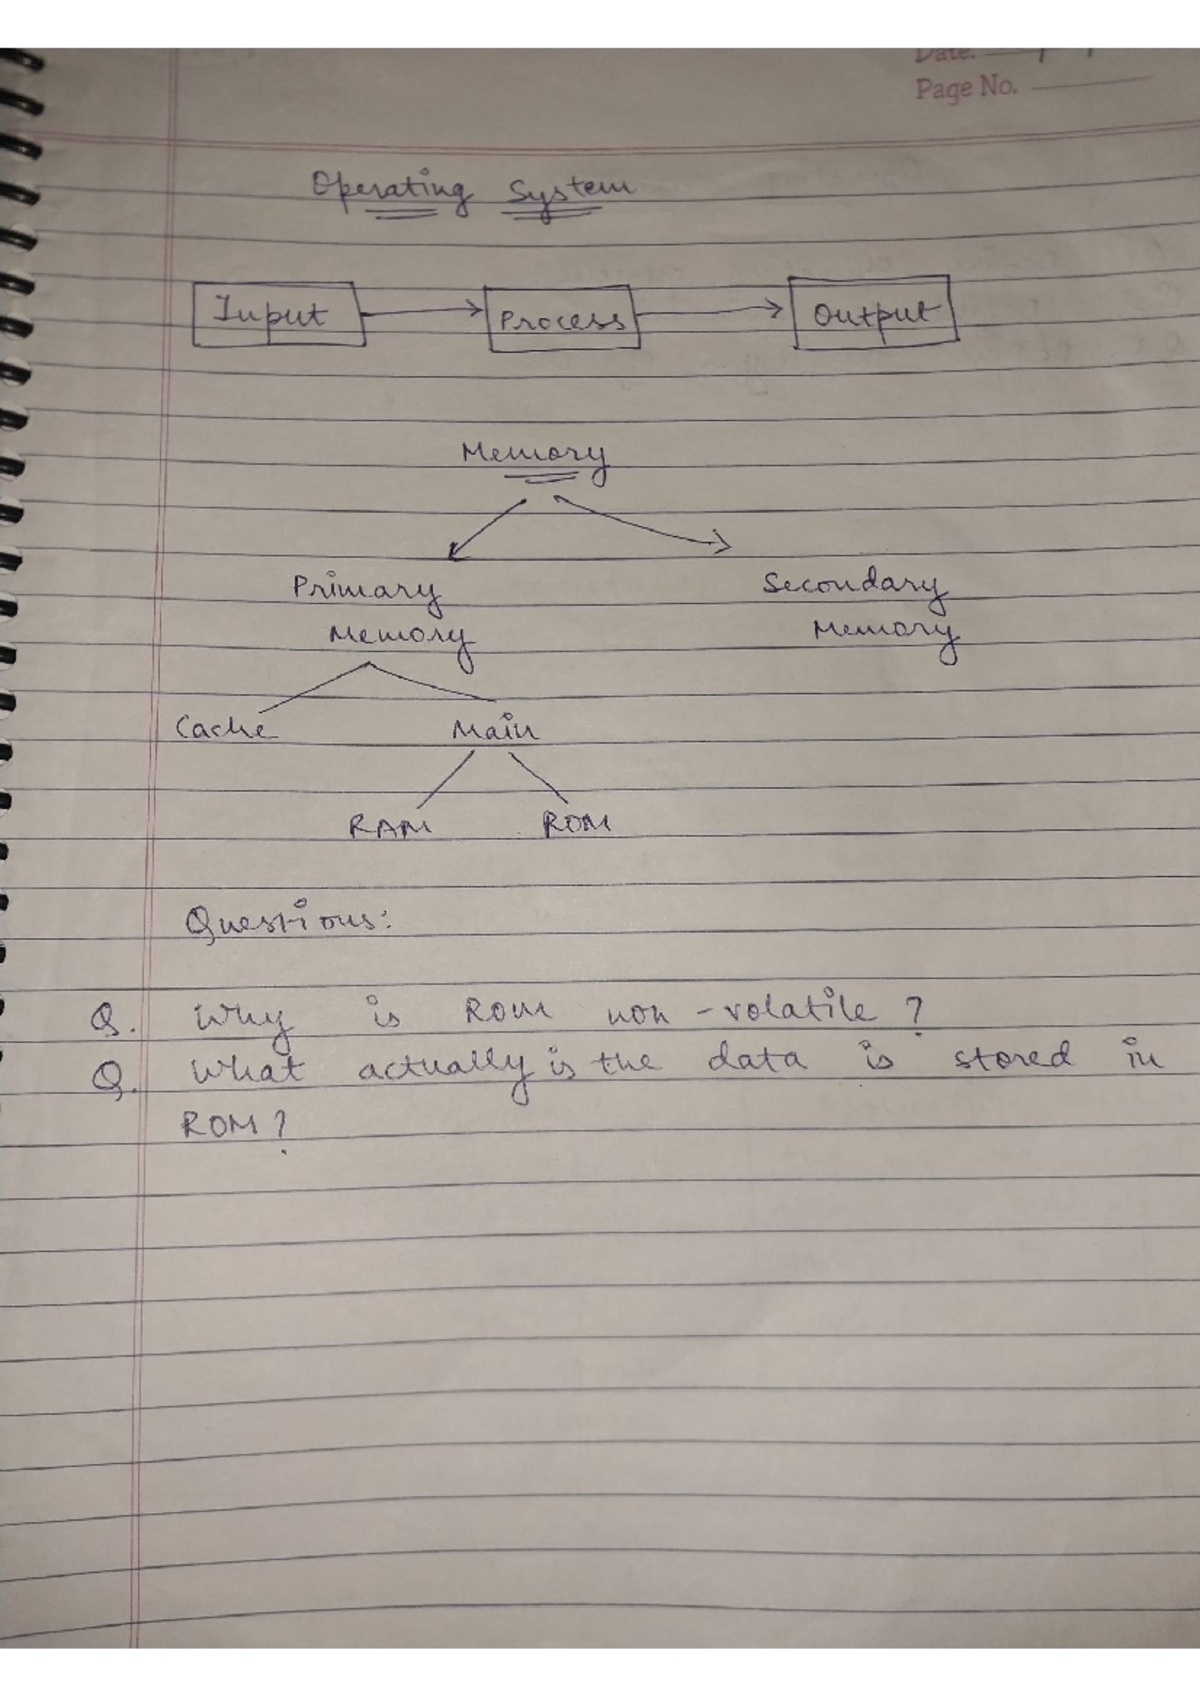 Date.
Page No.
Operating System
Input Process Output
Memory
Primary Secondary
Memory Memory
Cache Main
RAM ROM
Questions:
Q. Why is ROM non-volatile ?
Q. What actually is the data is stored in
ROM ?